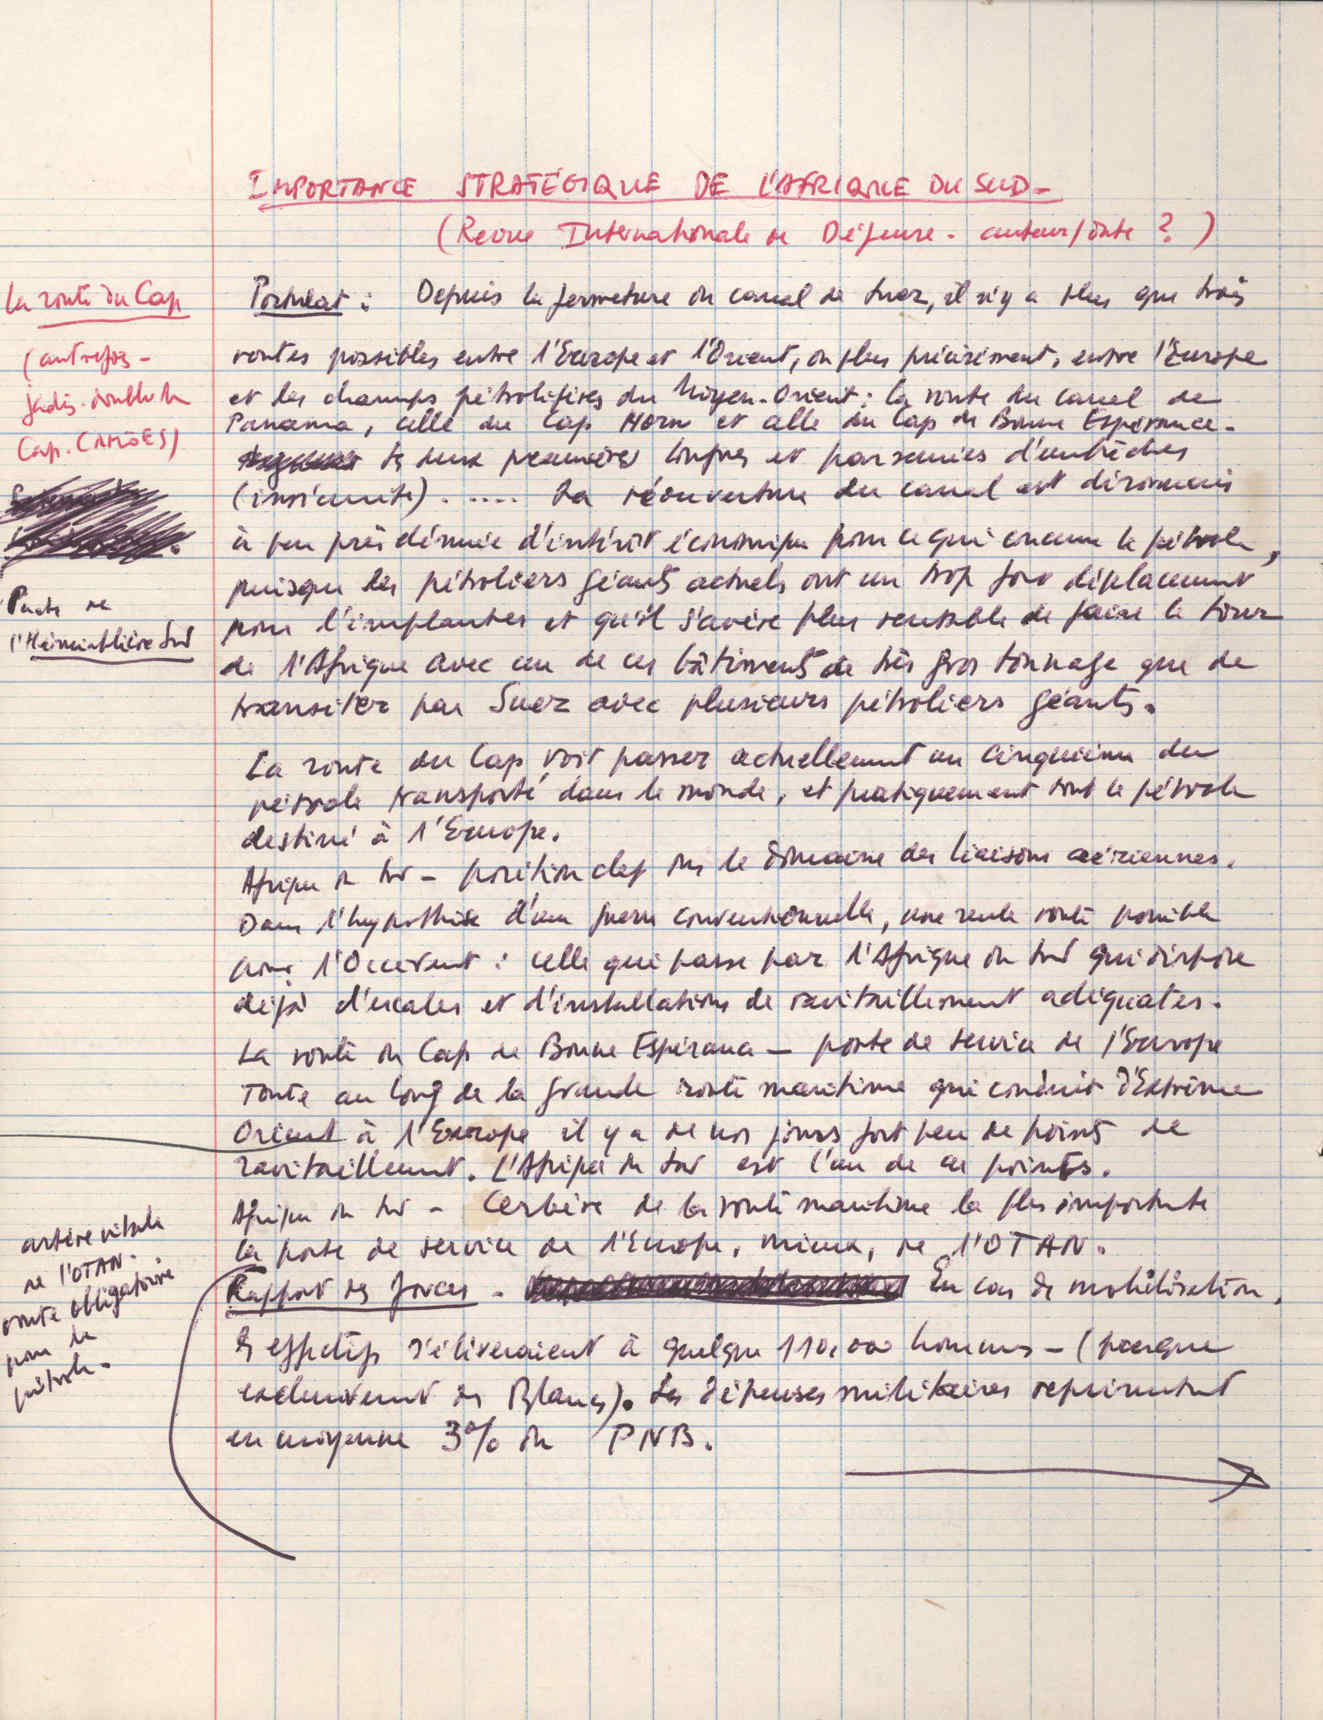 IMPORTANCE STRATÉGIQUE DE L'AFRIQUE DU SUD -
(Revue Internationale de Défense - auteur/date ?)
La route du Cap
(autrefois -
jadis - double le
Cap. CAMOES)
Postulat : Depuis la fermeture du canal de Suez, il n'y a plus que trois
routes possibles entre l'Europe et l'Orient, ou plus précisément, entre l'Europe
et les champs pétrolifères du Moyen-Orient : la route du canal de
Panama, celle du Cap Horn et celle du Cap de Bonne Espérance -
les deux premières longues et parsemées d'embûches
(insécurité) . .... La réouverture du canal est désormais
à peu près dénuée d'intérêt économique pour ce qui concerne le pétrole,
Pacte de
l'Hémisphère Sud
puisque les pétroliers géants actuels ont un trop fort déplacement
pour l'emprunter et qu'il s'avère plus rentable de faire le tour
de l'Afrique avec un de ces bâtiments de très gros tonnage que de
transiter par Suez avec plusieurs pétroliers géants.
La route du Cap voit passer actuellement un cinquième du
pétrole transporté dans le monde, et pratiquement tout le pétrole
destiné à l'Europe.
Afrique du Sud - position clef ds le domaine des liaisons aériennes.
Dans l'hypothèse d'une guerre conventionnelle, une seule route possible
pour l'Occident : celle qui passe par l'Afrique du Sud qui dispose
déjà d'escales et d'installations de ravitaillement adéquates.
La route du Cap de Bonne Espérance - porte de service de l'Europe
Toute au long de la grande route maritime qui conduit d'Extrême
Orient à l'Europe il y a de nos jours fort peu de points de
ravitaillement. L'Afrique du Sud est l'un de ces points.
Afrique du Sud - Cerbère de la route maritime la plus importante
la porte de service de l'Europe, mieux, de l'OTAN.
artère vitale
de l'OTAN -
route obligatoire
pour le
pétrole.
Rapport des forces - En cas de mobilisation,
les effectifs s'élèveraient à quelque 110.000 hommes - (presque
exclusivement des Blancs). Les dépenses militaires représentent
en moyenne 3% du PNB.